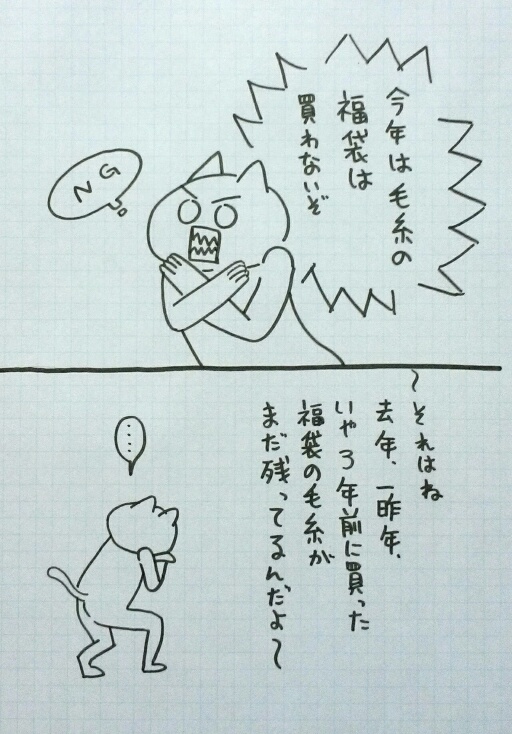 今年は毛糸の
福袋は
買わないぞ
NG
〜それはね
去年、一昨年、
いや3年前に買った
福袋の毛糸が
まだ残ってるんだよ〜
……